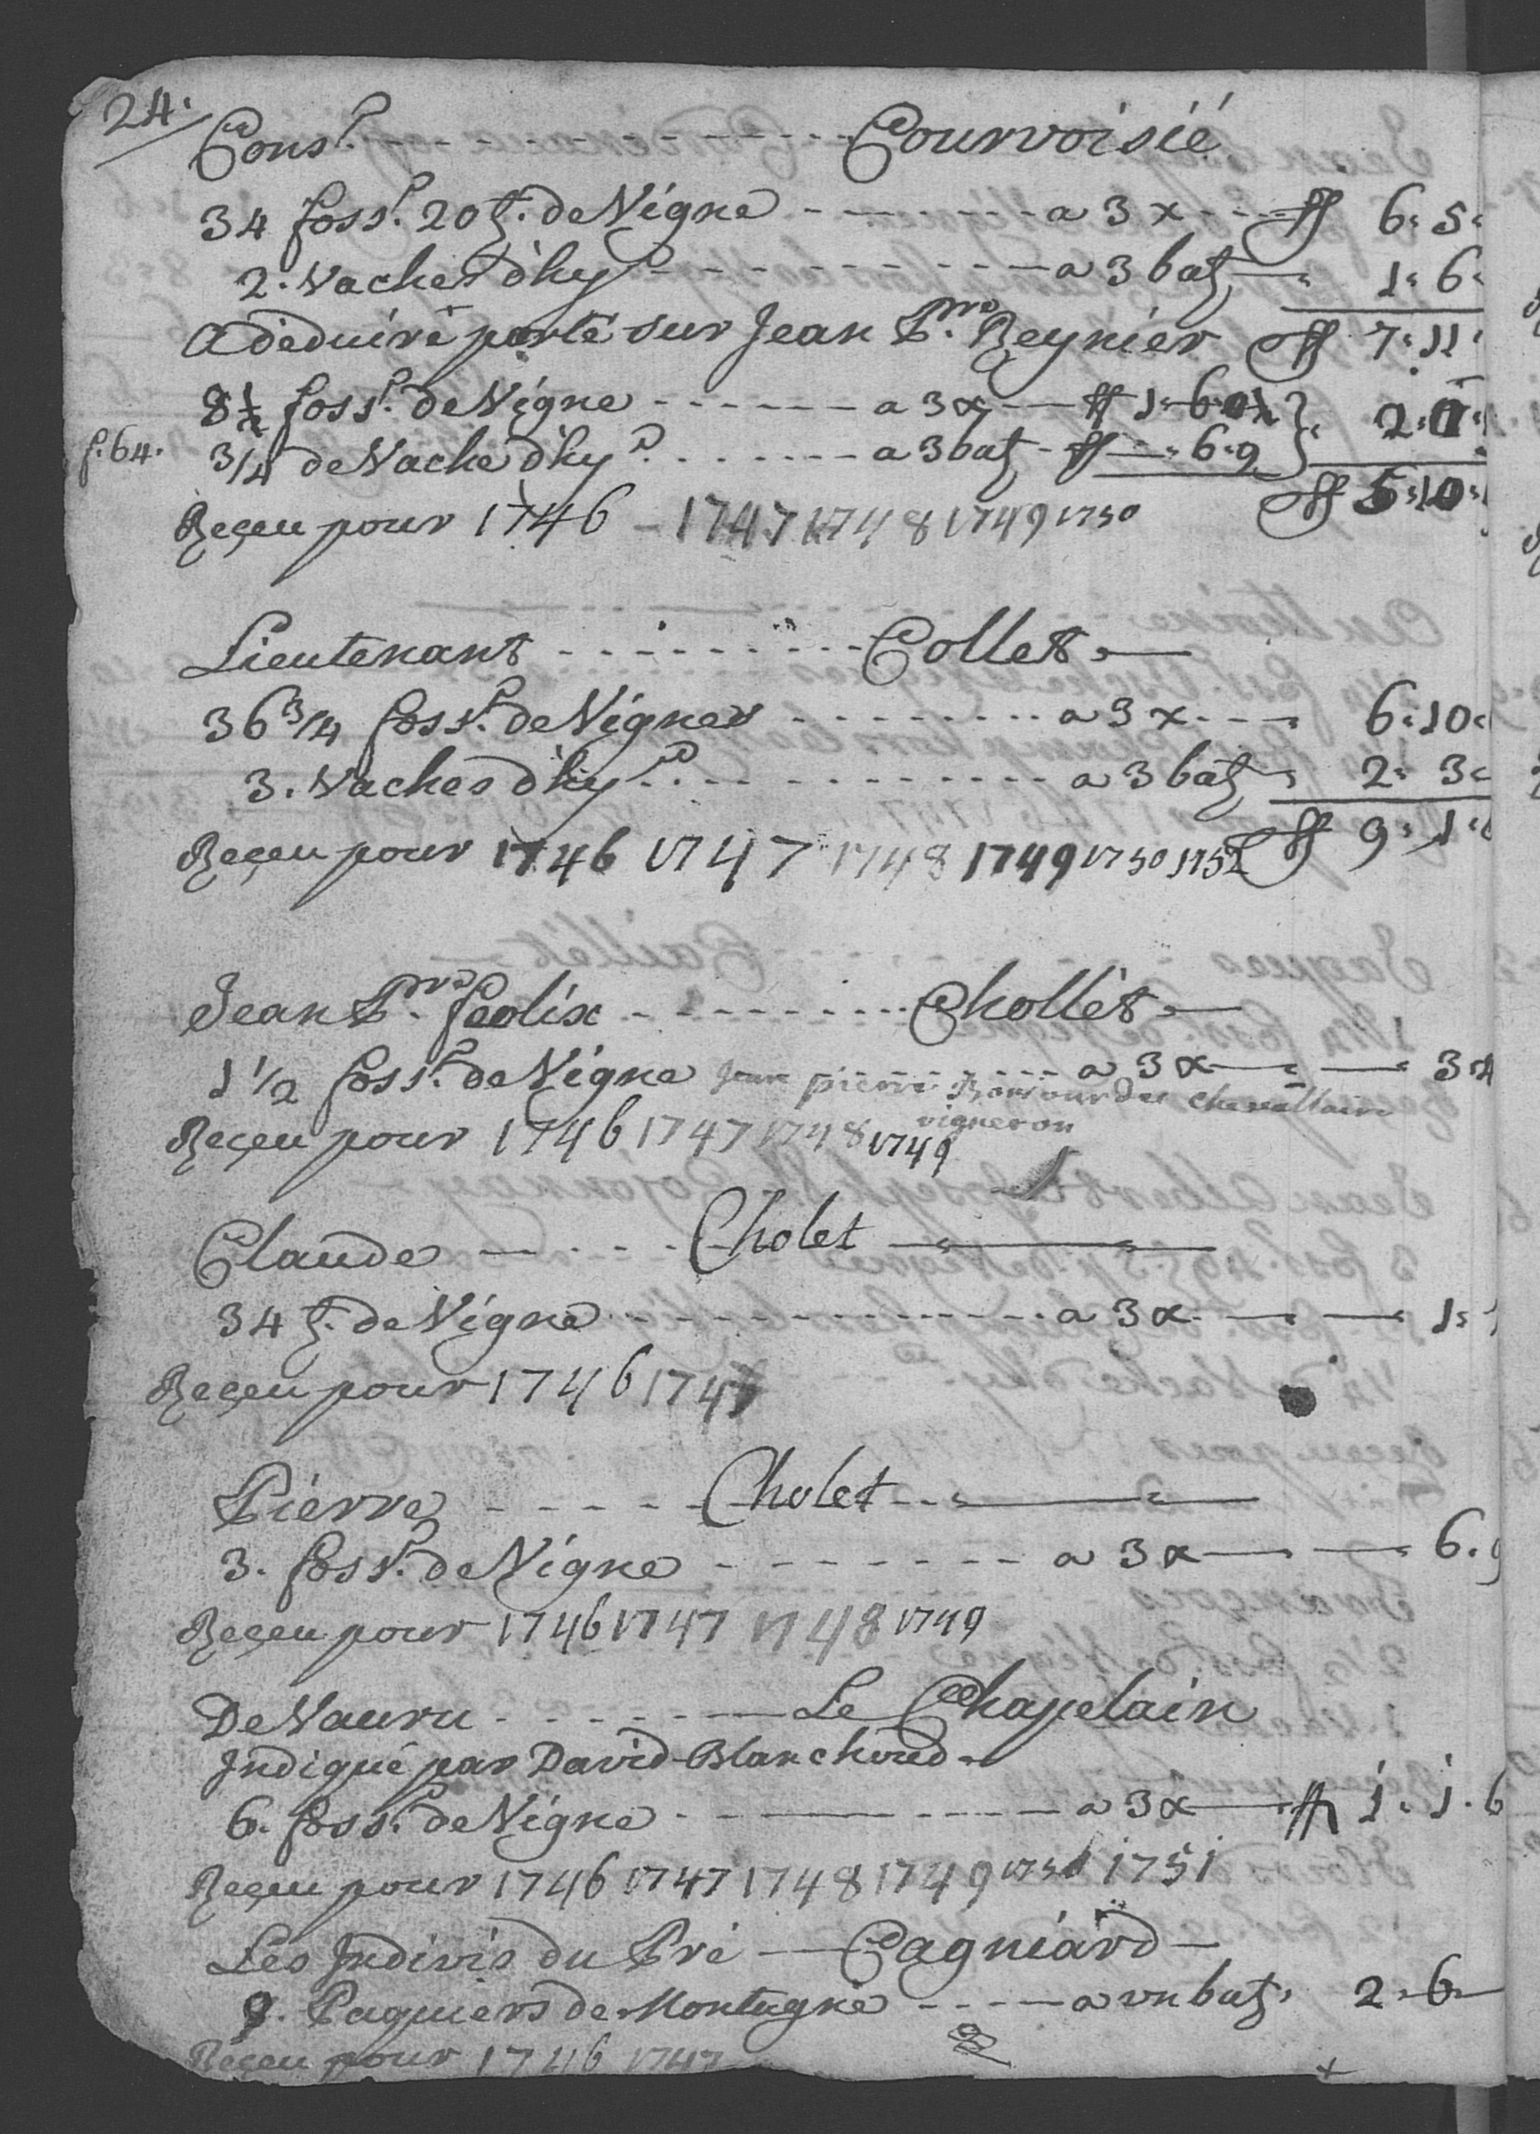 24.
Cons.r - - - - - - - - Courvoisié
34 foss.r 20 t. de Vigne - - - - - - a 3 x - - ff 6: 5:
2. Vaches d'hy.r - - - - - - - - a 3 batz 1: 6:
A déduire porté sur Jean P.rre Reynier ff 7: 11:
8½ foss.r de Vigne - - - - - a 3 x — ff 1: 6: } 2:
f. 64. 3/4 de Vache d'hy.r - - - - - - a 3 batz - ff — : 6: 9
ff 5: 10:
Reçeu pour 1746 - 1747 1748 1749 1750
Lieutenant - - - - - - - - Collet
36 3/4 foss.r de Vignes - - - - - - - a 3 x - - - 6: 10:
3. Vaches d'hy.r - - - - - - - - - a 3 batz 2: 3:
Reçeu pour 1746 1747 1748 1749 1750 1752 ff 9: 1:
Jean P.rre Feolix - - - - - - - - Chollet
1 1/2 foss.r de Vigne - - - - - a 3 x — — 3:4
Jean pierre Bonjour des chevallaire
vigneron
Reçeu pour 1746 1747 1748 1749
Claude - - - - Cholet
34 t. de Vigne - - - - - - - - - a 3 x — — 1:
Reçeu pour 1746 1747
Pierre - - - - - Cholet
3. foss.r de Vigne - - - - - - - a 3 x — — 6. 9
Reçeu pour 1746 1747 1748 1749
De Vauru - - - - - - Le Chapelain
Indiqué par David Blanchoud
6. foss.r de Vigne - - - - - - a 3 x — ff 1. 1. 6
Reçeu pour 1746 1747 1748 1749 1750 1751
Les Indivis du Pré — Cagniard
9. Paquiers de Montagne - - - - a un batz. 2. 6
Reçeu pour 1746 1747